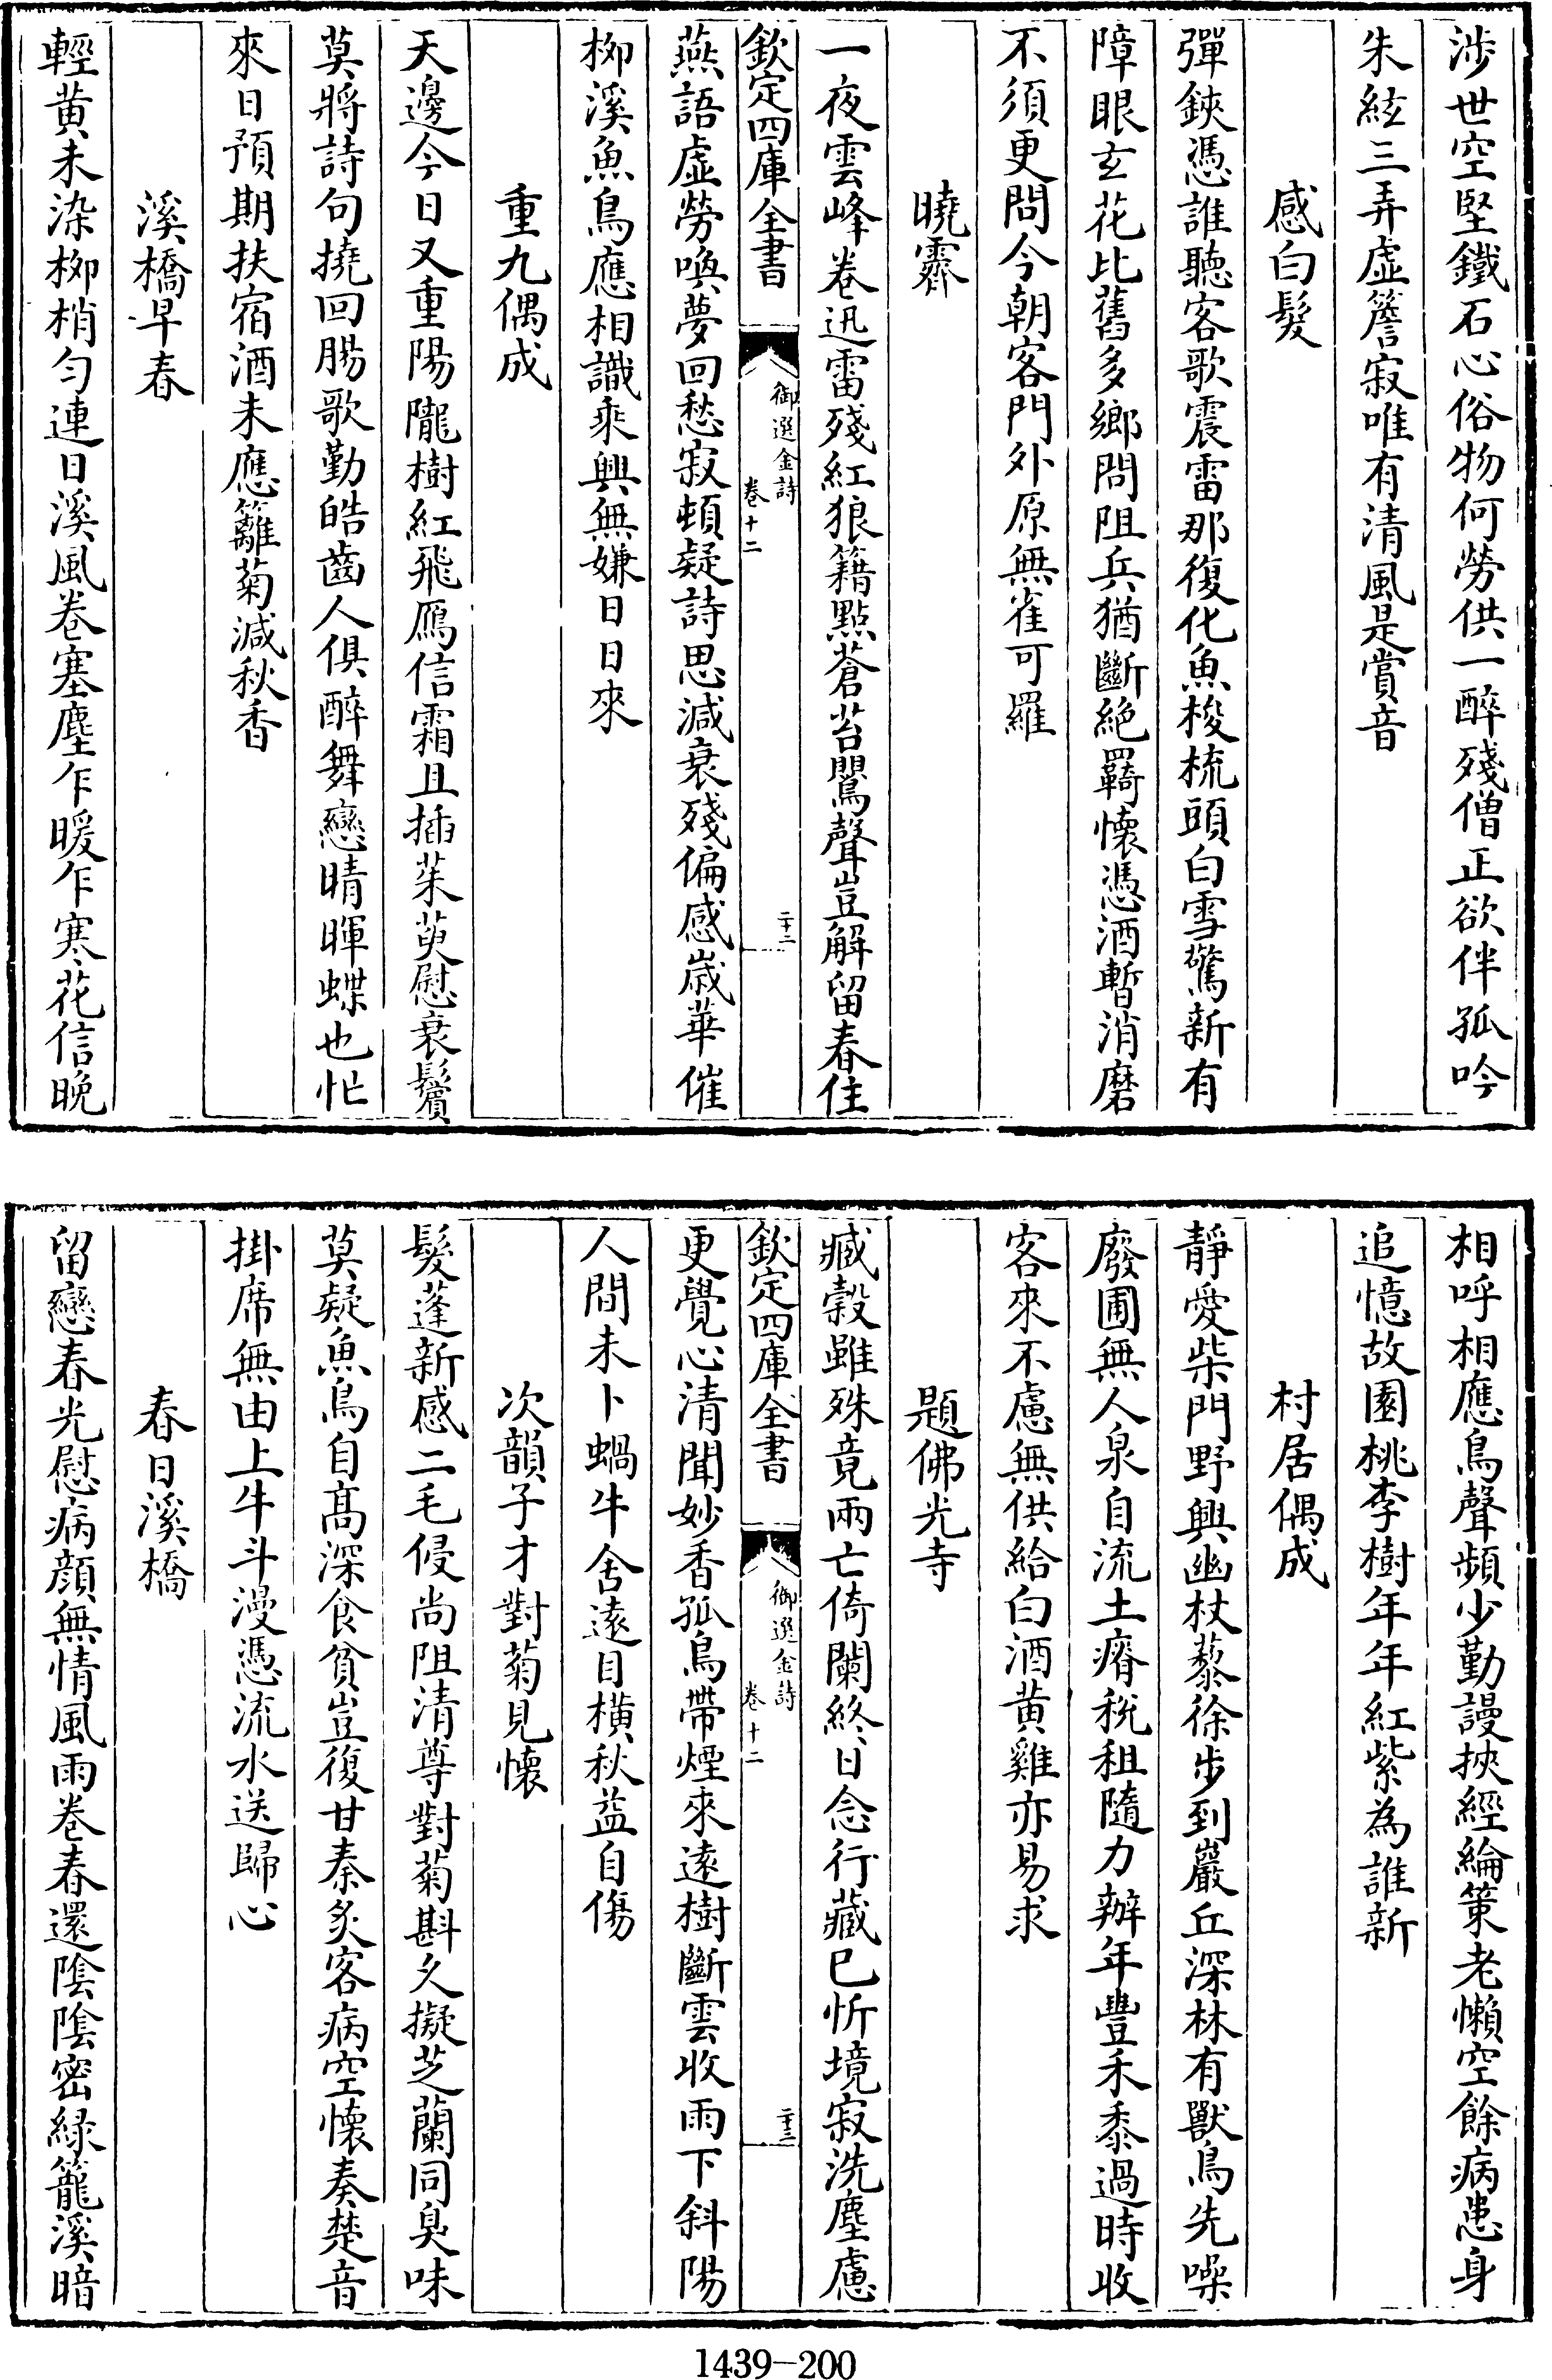 涉世空堅鐵石心俗物何勞供一醉殘僧正欲伴孤吟
朱絃三弄虛簷寂唯有清風是賞音
感白髮
彈鋏憑誰聽客歌震雷那復化魚梭梳頭白雪驚新有
障眼玄花比舊多鄉問阻兵猶斷絶羇懷憑酒暫消磨
不須更問今朝客門外原無雀可羅
曉霽
一夜雲峰卷迅雷殘紅狼籍點蒼苔鸎聲豈解留春住
欽定四庫全書
御選金詩
卷十二
二十二
燕語虛勞喚夢回愁寂頓疑詩思減衰殘偏感歲華催
柳溪魚鳥應相識乘興無嫌日日來
重九偶成
天邊今日又重陽隴樹紅飛鴈信霜且插茱萸慰衰鬢
莫將詩句撓回腸歌勤皓齒人俱醉舞戀晴暉蝶也忙
來日預期扶宿酒未應籬菊減秋香
溪橋早春
輕黄未染柳梢勻連日溪風卷塞塵乍暖乍寒花信晩
相呼相應鳥聲頻少勤謾挾經綸策老懶空餘病患身
追憶故園桃李樹年年紅紫為誰新
村居偶成
靜愛柴門野興幽杖藜徐步到巖丘深林有獸鳥先噪
廢圃無人泉自流土瘠税租隨力辦年豐禾黍過時收
客來不慮無供給白酒黄雞亦易求
題佛光寺
臧榖雖殊竟兩亡倚闌終日念行藏已忻境寂洗塵慮
欽定四庫全書
御選金詩
卷十二
二十三
更覺心清聞妙香孤鳥帶煙來遠樹斷雲收雨下斜陽
人間未卜蝸牛舍遠目橫秋益自傷
次韻子才對菊見懷
髮蓬新感二毛侵尚阻清尊對菊斟久擬芝蘭同臭味
莫疑魚鳥自髙深食貧豈復甘秦炙客病空懷奏楚音
掛席無由上牛斗漫憑流水送歸心
春日溪橋
留戀春光慰病顔無情風雨卷春還陰陰密緑籠溪暗
1439—200